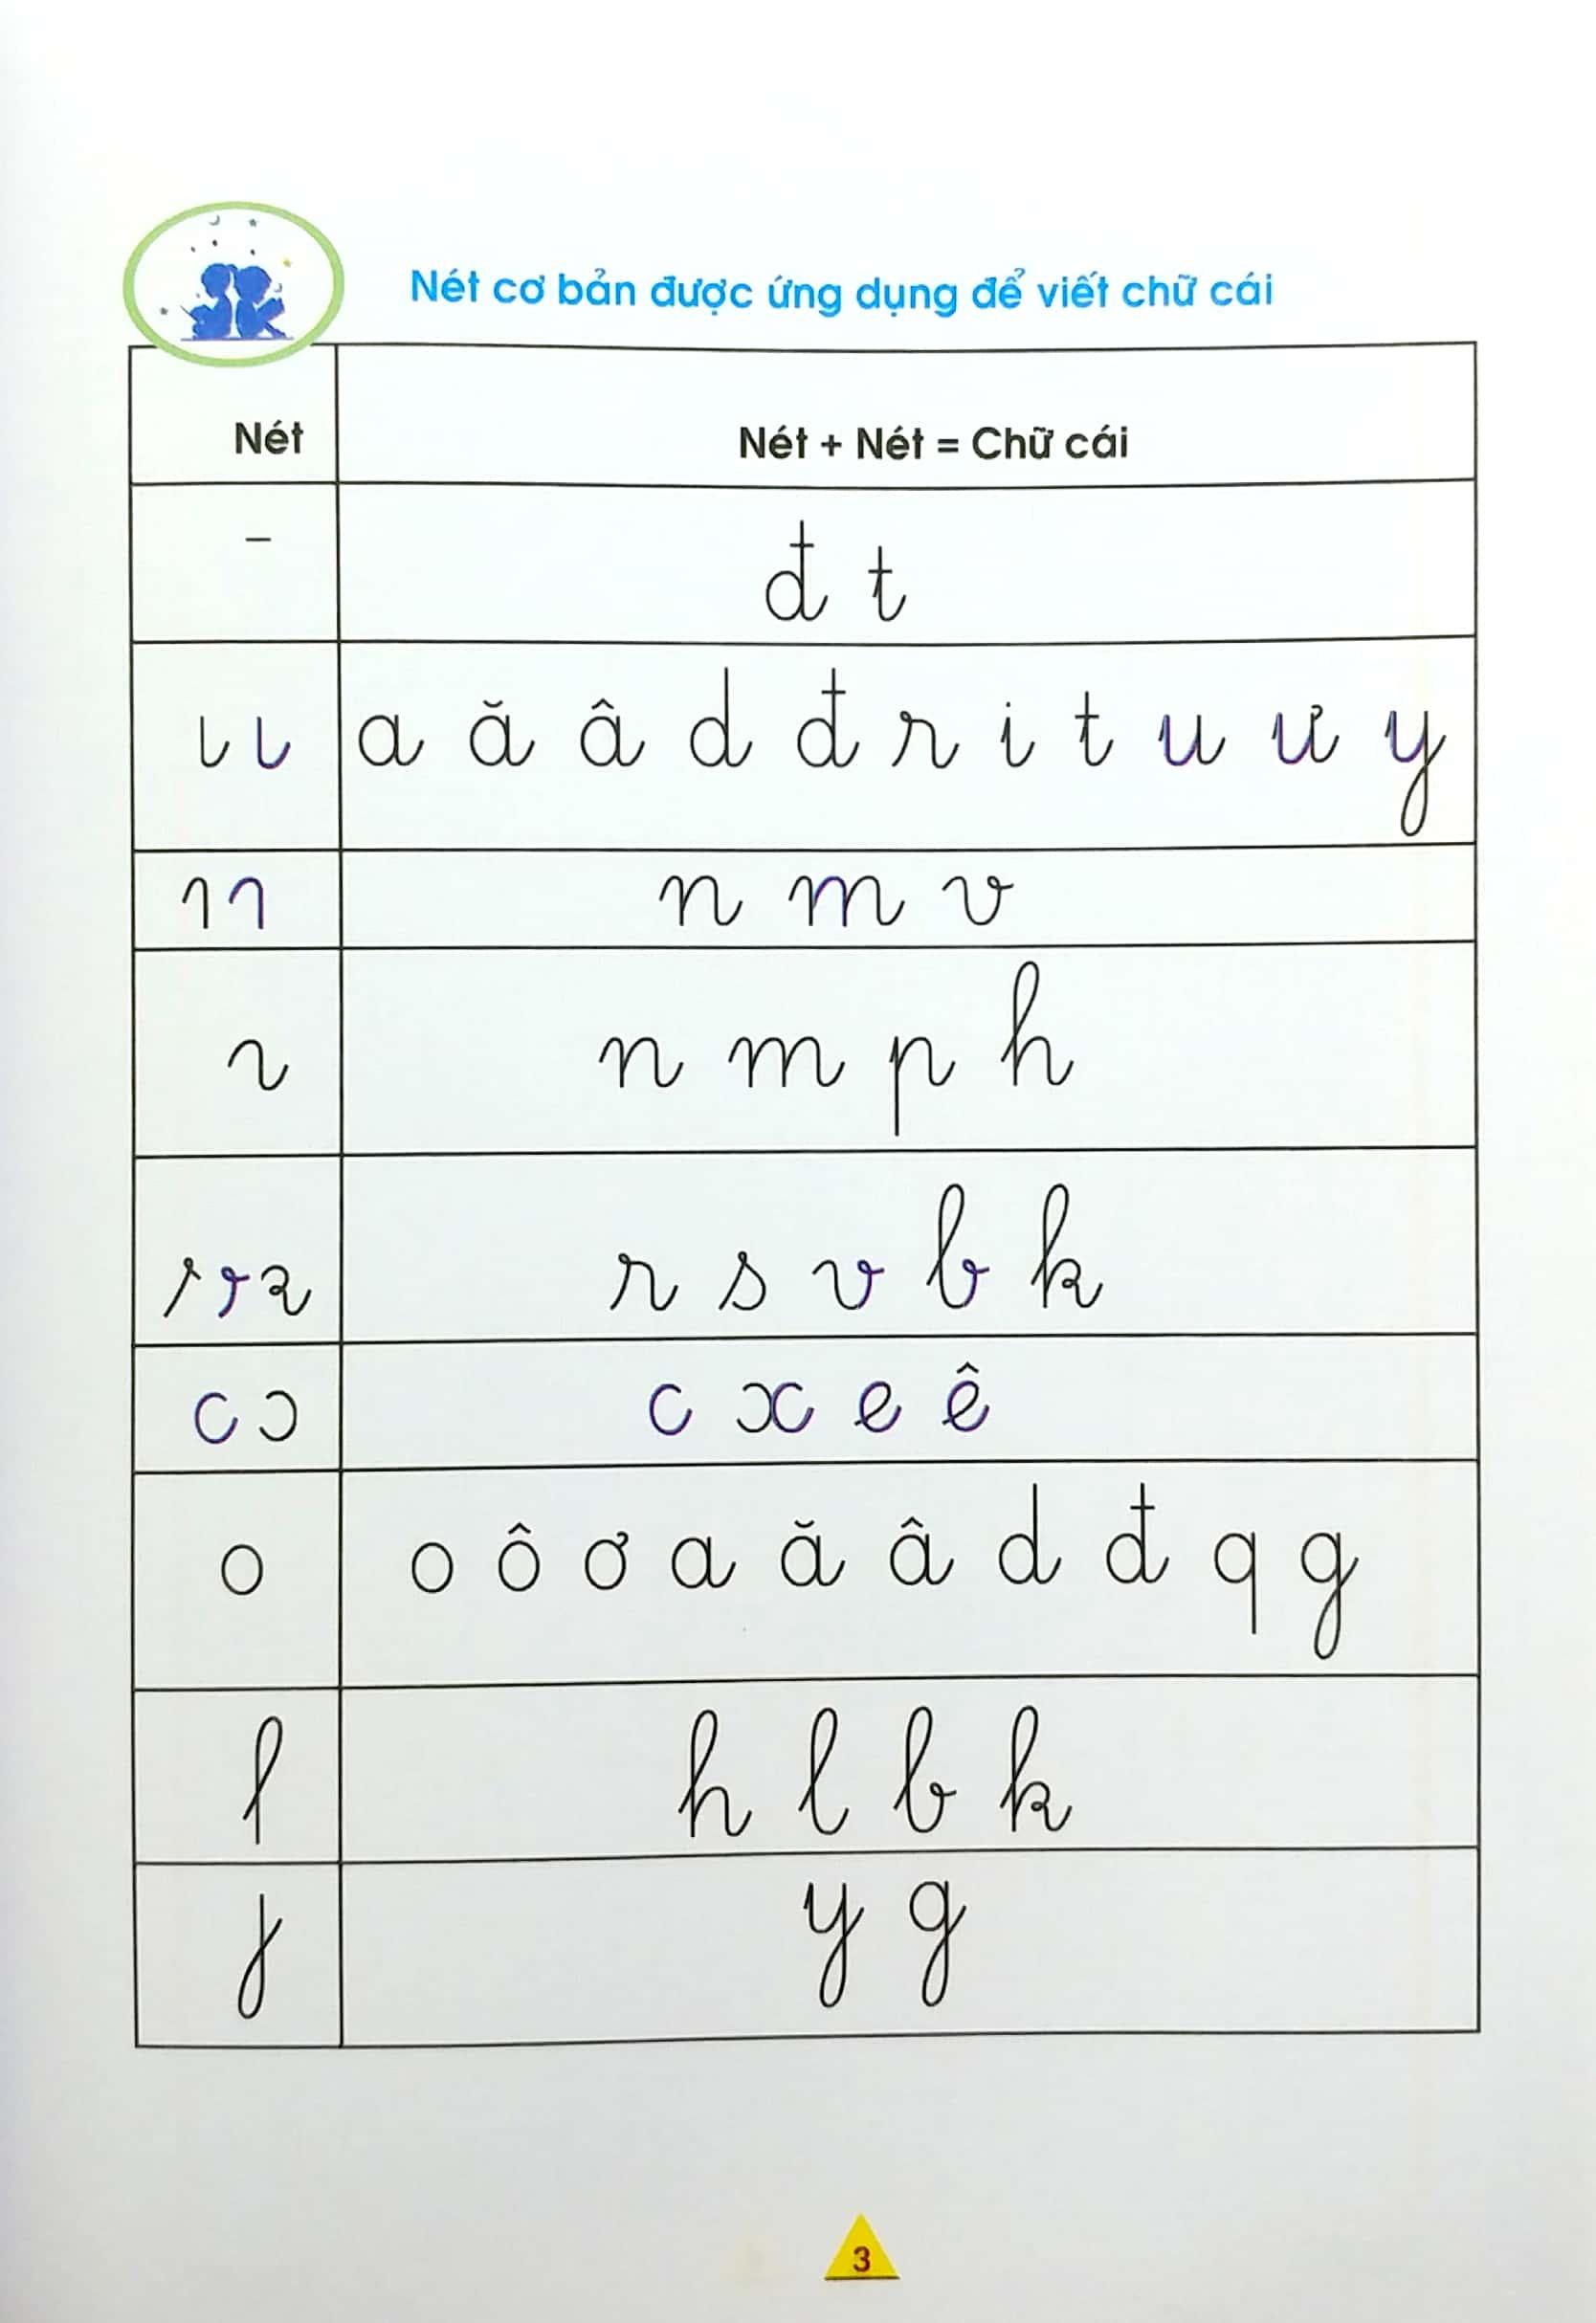 Nét cơ bản được ứng dụng để viết chữ cái
Nét Nét + Nét = Chữ cái
- đ t
a ă â d đ r i t u ư y
n m v
n m p h
r s v b k
c x e ê
o o ô ơ a ă â d đ q g
h l b k
y g
3